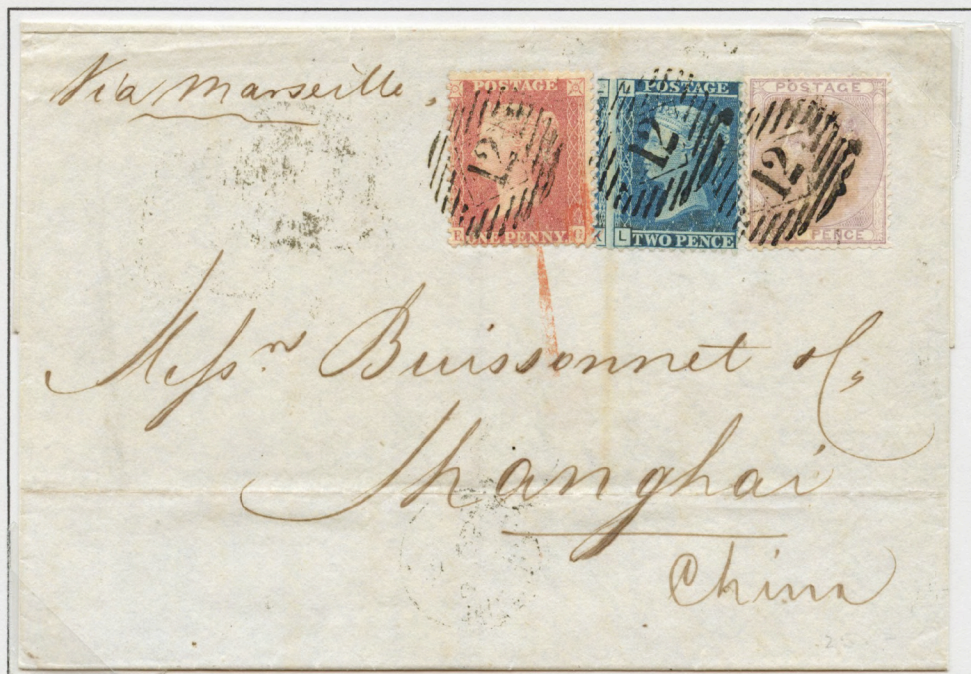 Via Marseille.
POSTAGE
12
ONE PENNY
POSTAGE
12
L TWO PENCE
K
POSTAGE
12
PENCE
Messrs Buissonnet & Co
Shanghai
China